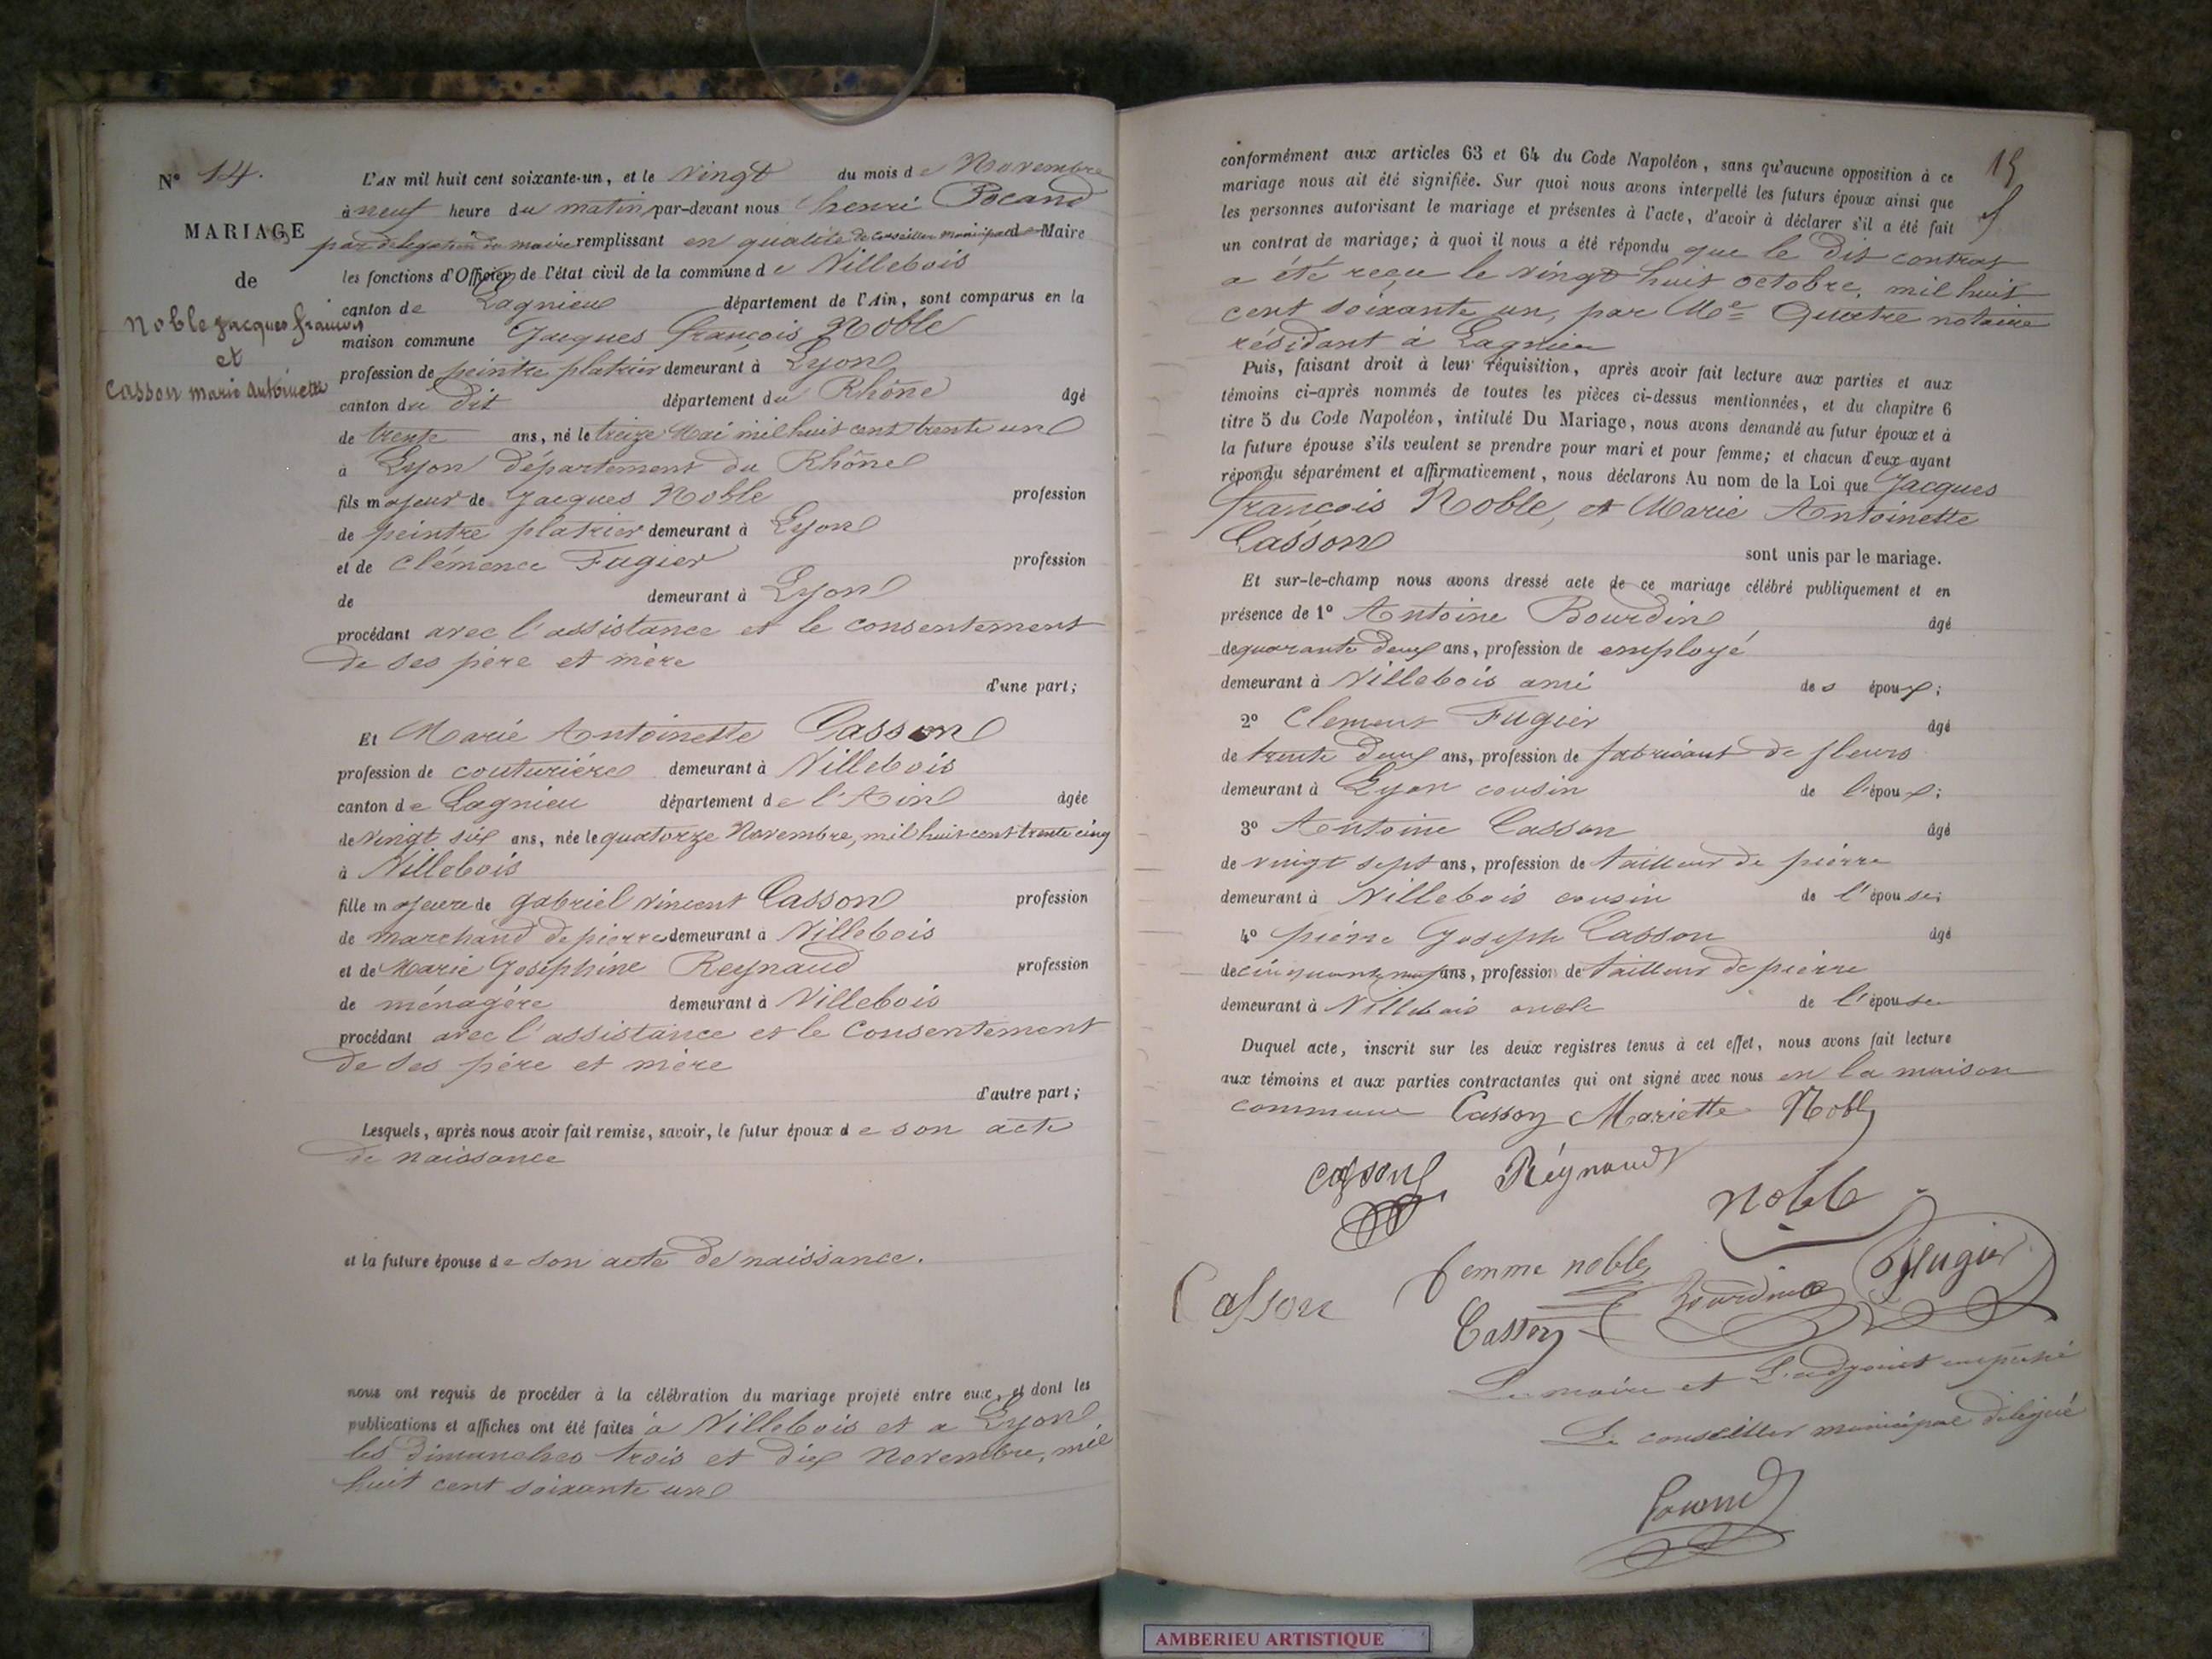 N° 14.
MARIAGE
de
Noble Jacques françois
et
Casson marie antoinette
L'AN mil huit cent soixante-un, et le Vingt du mois de Novembre
à neuf heure du matin par-devant nous henri Pocand
par délégation du maire remplissant en qualité de Conseiller municipal Maire
les fonctions d'Officier de l'état civil de la commune de Villebois
canton de Lagnieu département de l'Ain, sont comparus en la
maison commune Jacques françois Noble
profession de peintre platrier demeurant à Lyon
canton du dit département du Rhône âgé
de trente ans, né le treize Mai mil huit cent trente un
à Lyon département du Rhône
fils majeur de Jacques Noble profession
de peintre platrier demeurant à Lyon
et de Clémence Fugier profession
de demeurant à Lyon
procédant avec l'assistance et le consentement
de ses père et mère
d'une part;
Et Marie Antoinette Casson
profession de couturière demeurant à Villebois
canton de Lagnieu département de l'Ain âgée
de vingt six ans, née le quatorze Novembre, mil huit cent trente cinq
à Villebois
fille majeure de gabriel vincent Casson profession
de marchand de pierre demeurant à Villebois
et de Marie Joséphine Reynaud profession
de ménagère demeurant à Villebois
procédant avec l'assistance et le Consentement
de ses père et mère
d'autre part;
Lesquels, après nous avoir fait remise, savoir, le futur époux de son acte
de naissance
et la future épouse de son acte de naissance.
nous ont requis de procéder à la célébration du mariage projeté entre eux, et dont les
publications et affiches ont été faites à Villebois et a Lyon
les dimanches trois et dix Novembre, mil
huit cent soixante un
15
conformément aux articles 63 et 64 du Code Napoléon, sans qu'aucune opposition à ce
mariage nous ait été signifiée. Sur quoi nous avons interpellé les futurs époux ainsi que
les personnes autorisant le mariage et présentes à l'acte, d'avoir à déclarer s'il a été fait
un contrat de mariage; à quoi il nous a été répondu que le dit contrat
a été reçu le vingt huit octobre, mil huit
cent soixante un, par Me Quatre notaire
résidant à Lagnieu
Puis, faisant droit à leur réquisition, après avoir fait lecture aux parties et aux
témoins ci-après nommés de toutes les pièces ci-dessus mentionnées, et du chapitre 6
titre 5 du Code Napoléon, intitulé Du Mariage, nous avons demandé au futur époux et à
la future épouse s'ils veulent se prendre pour mari et pour femme; et chacun d'eux ayant
répondu séparément et affirmativement, nous déclarons Au nom de la Loi que Jacques
françois Noble, et Marie Antoinette
Casson
sont unis par le mariage.
Et sur-le-champ nous avons dressé acte de ce mariage célébré publiquement et en
présence de 1° Antoine Bourdin âgé
de quarante deux ans, profession de employé
demeurant à Villebois ami des époux;
2° Clement Fugier âgé
de trente deux ans, profession de fabricant de fleurs
demeurant à Lyon cousin de l'époux;
3° Antoine Casson âgé
de vingt sept ans, profession de tailleur de pierre
demeurant à Villebois cousin de l'épouse;
4° pierre Joseph Casson âgé
de cinquante neuf ans, profession de tailleur de pierre
demeurant à Villebois oncle de l'épouse
Duquel acte, inscrit sur les deux registres tenus à cet effet, nous avons fait lecture
aux témoins et aux parties contractantes qui ont signé avec nous en la maison
commune Casson Mariette Noble
Casson Réynaud
noble
femme noble Fugier
Casson Bourdin
Casson
Le maire et L'adjoint empêché
Le conseiller municipal délégué
Pocand
AMBERIEU ARTISTIQUE